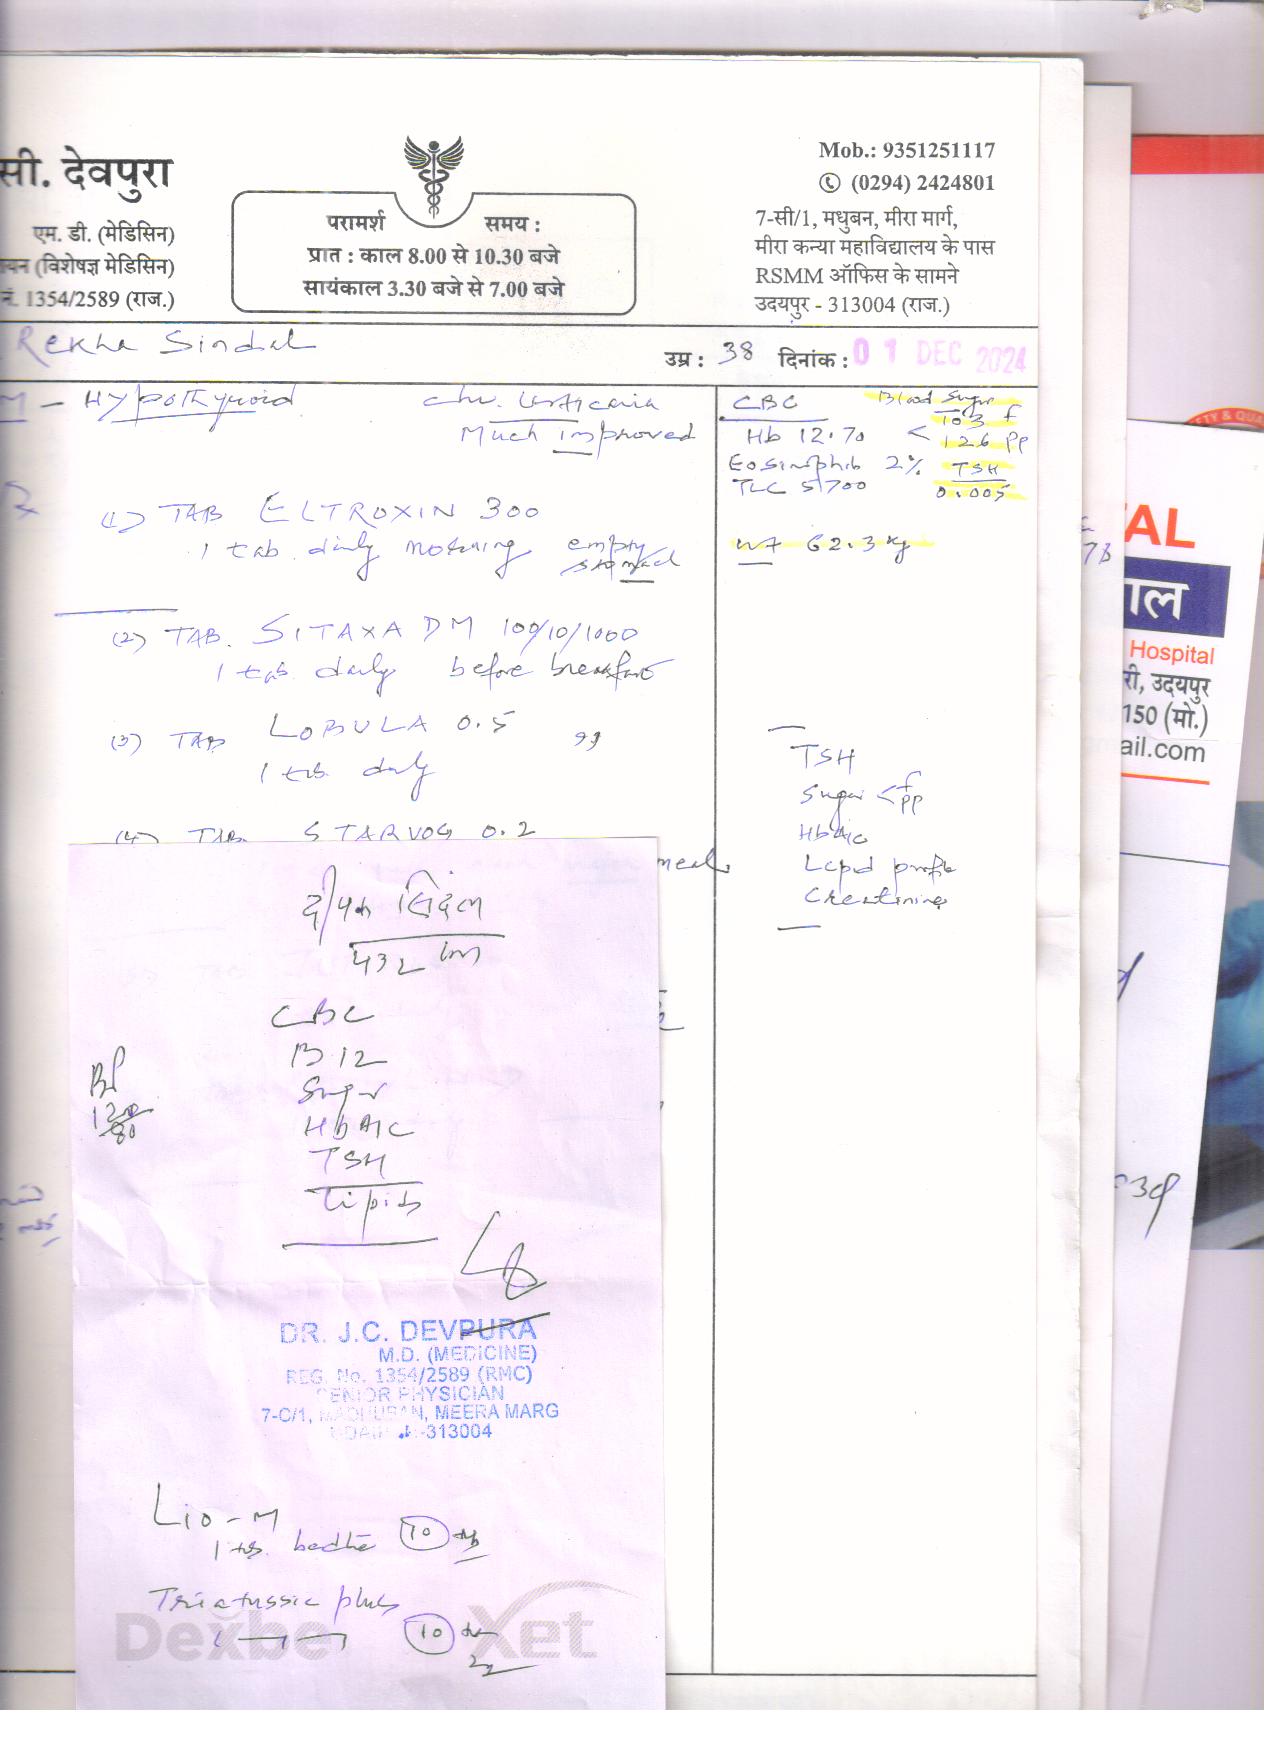 सी. देवपुरा
एम. डी. (मेडिसिन)
(विशेषज्ञ मेडिसिन)
नं. 1354/2589 (राज.)
परामर्श समय :
प्रात : काल 8.00 से 10.30 बजे
सायंकाल 3.30 बजे से 7.00 बजे
Mob.: 9351251117
(0294) 2424801
7-सी/1, मधुबन, मीरा मार्ग,
मीरा कन्या महाविद्यालय के पास
RSMM ऑफिस के सामने
उदयपुर - 313004 (राज.)
Rekha Sindal
उम्र : 38 दिनांक : 01 DEC 2024
M - Hypothyroid
Chr. Urticaria
Much improved
CBC
Hb 12.70
Eosinophils 2%
TLC 5700
Blood Sugar
103 f
126 pp
TSH
0.005
WT 62.3 kg
(1) TAB ELTROXIN 300
1 tab. daily morning empty
stomach
(2) TAB. SITAXA DM 100/10/1000
1 tab. daily before breakfast
(3) TAB LOBULA 0.5
1 tab. daily
(4) TAB. STARVOG 0.2
meal
TSH
Sugar < f
pp
HbA1c
Lipid profile
Creatinine
दीपक सिंदल
CBC
B12
Sugar
HbA1C
TSH
Lipids
BP
120/80
DR. J.C. DEVPURA
M.D. (MEDICINE)
REG. No. 1354/2589 (RMC)
SENIOR PHYSICIAN
7-C/1, MADHUBAN, MEERA MARG
-313004
Lio-M
1 tab. bedtime 10
Triatussic plus
10
Dexbe Xet
AL
ाल
Hospital
री, उदयपुर
150 (मो.)
ail.com